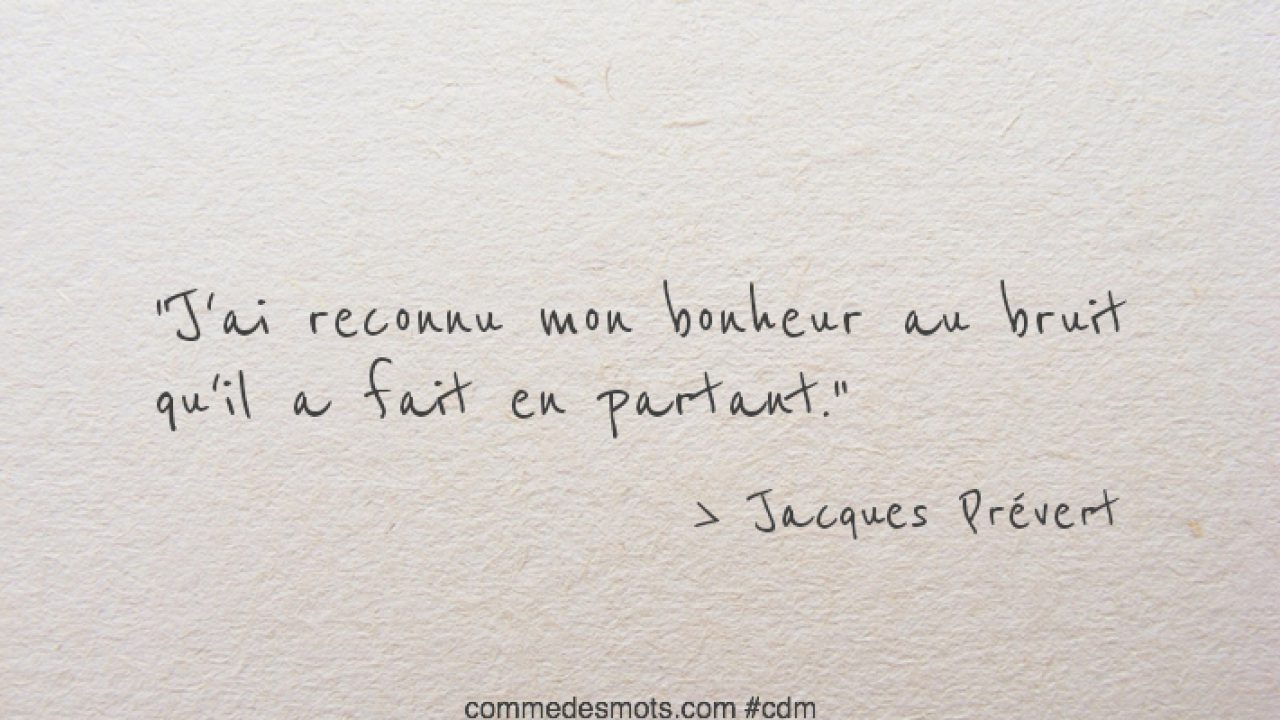 "J'ai reconnu mon bonheur au bruit
qu'il a fait en partant."
> Jacques Prévert
commedesmots.com #cdm